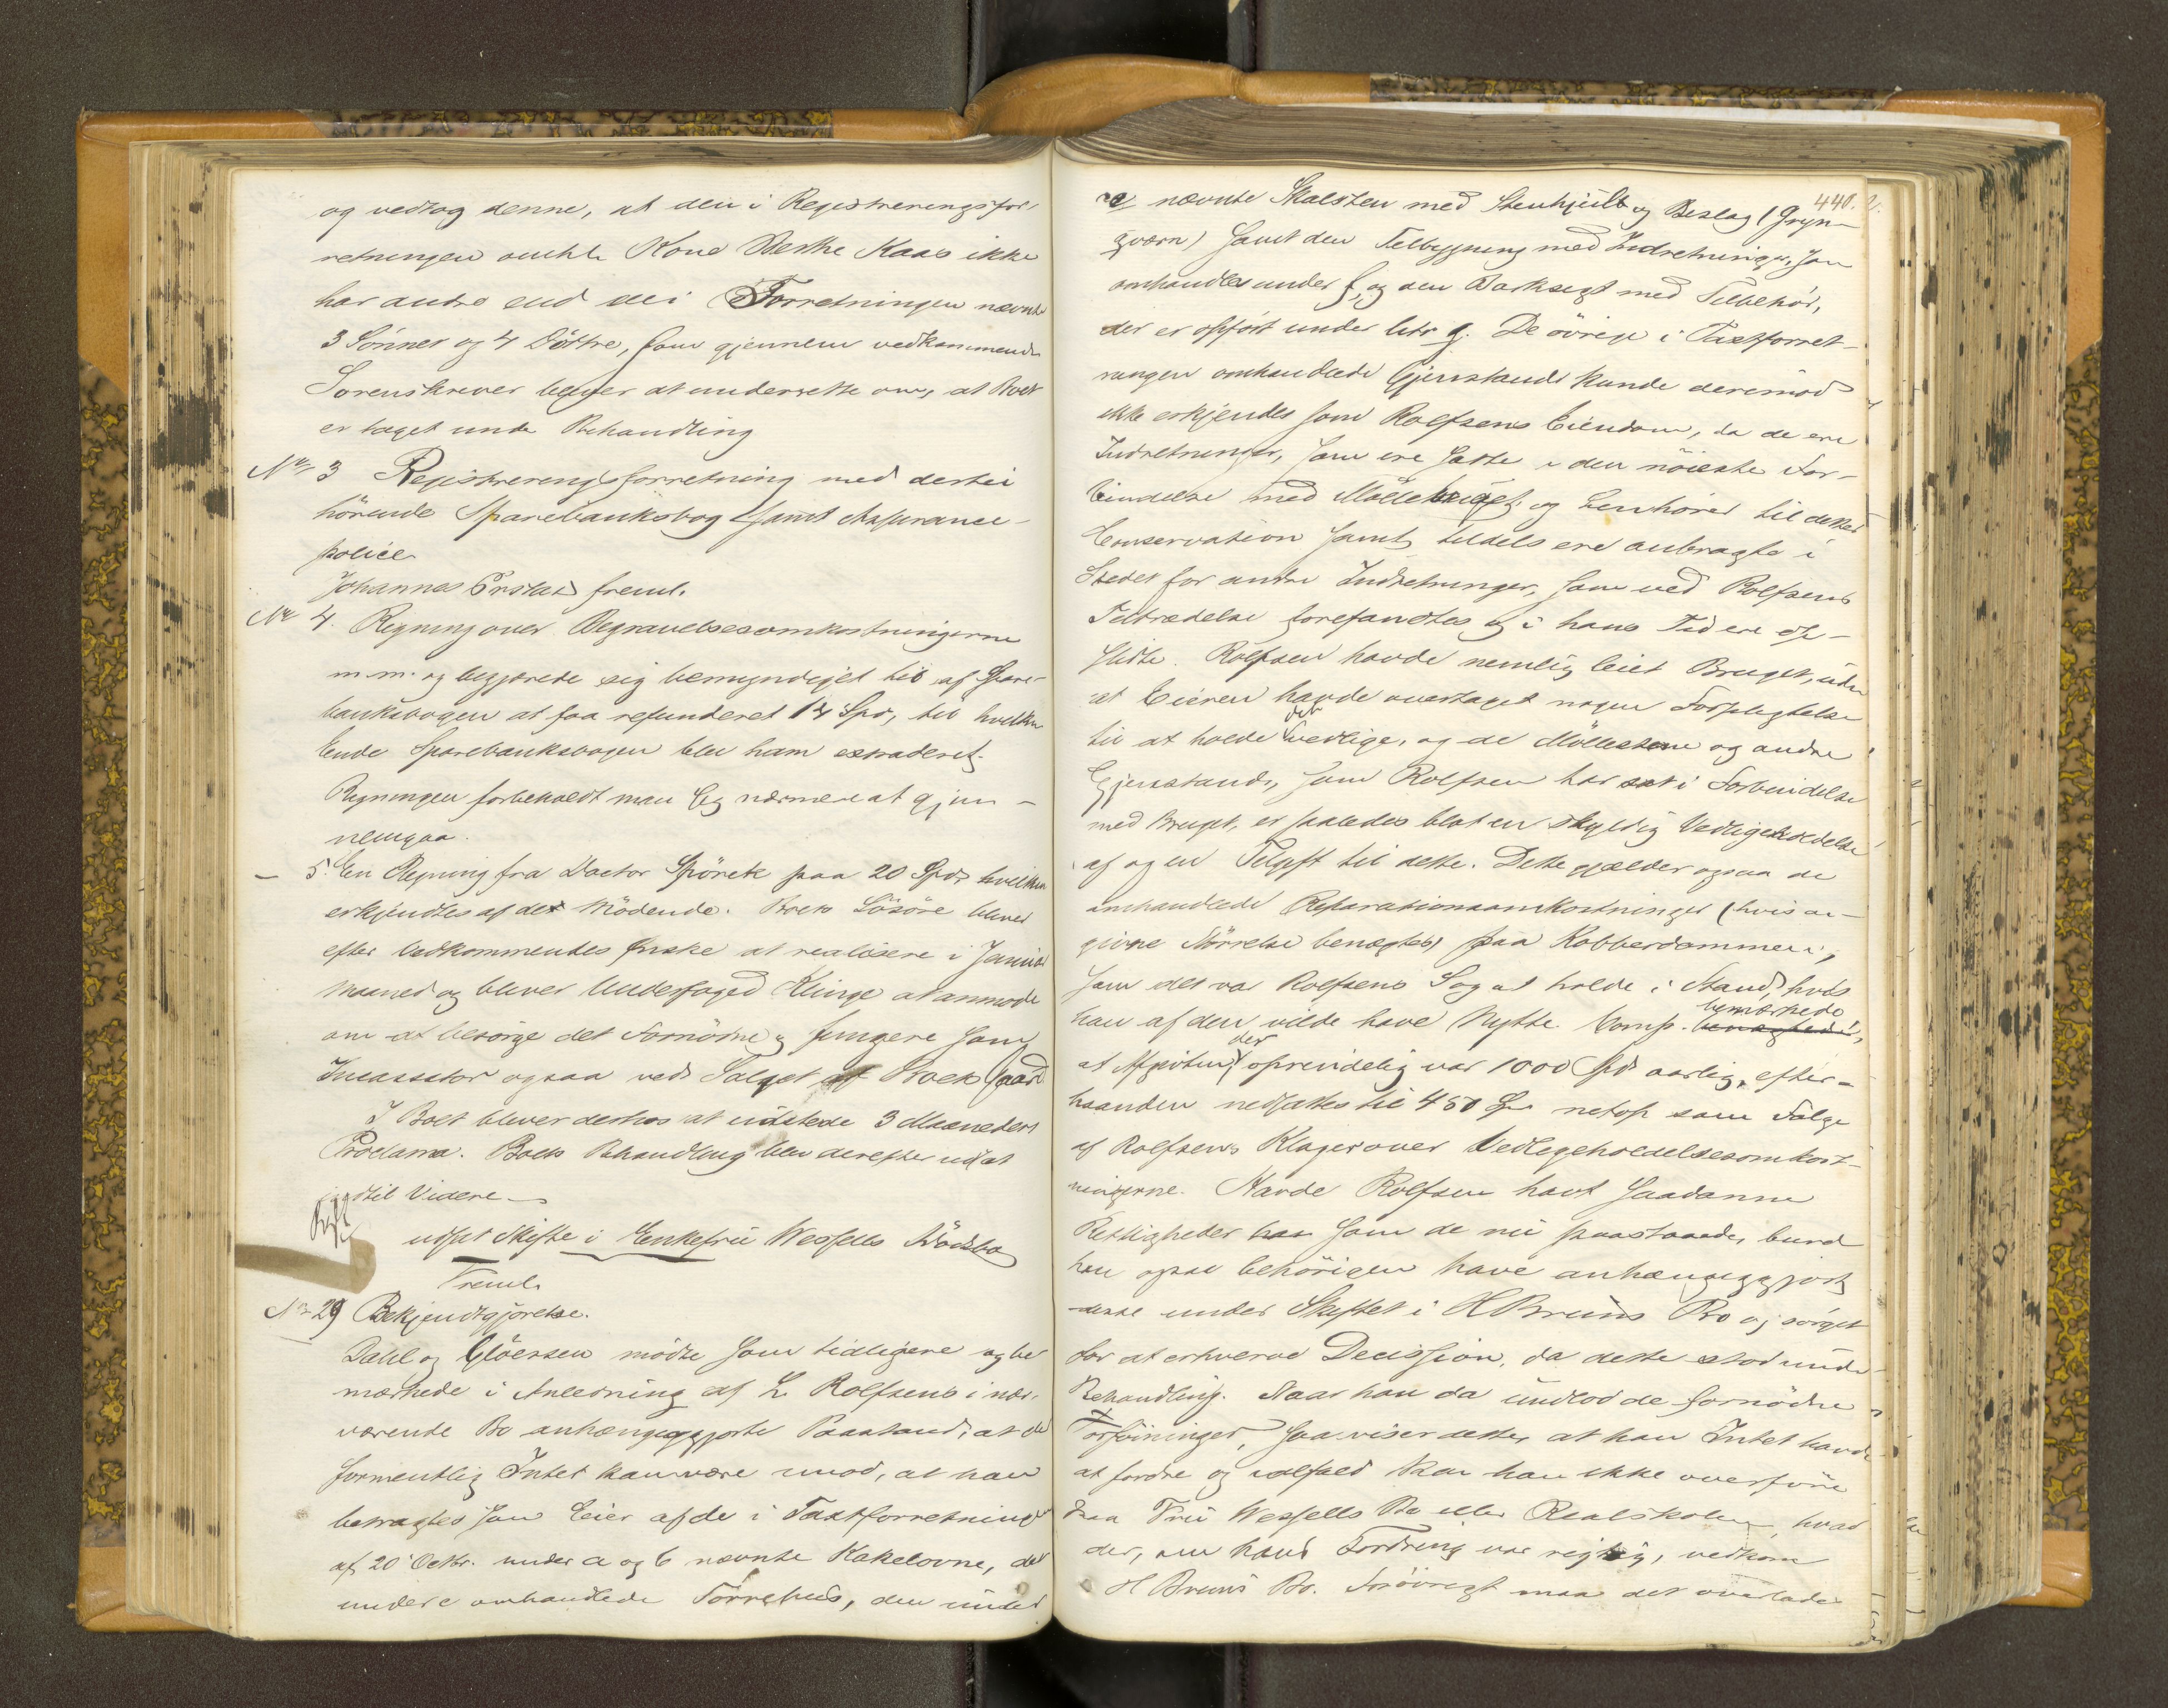 og vedtog denne, at den i Registreringsfor-
retningen omhdle Kone Berthe Kaas ikke
har andre end de i Forretningen nævnte
3 Sönner og 4 Döttre, som gjennem vedkommende
Sorenskriver bliver at underrette om, at Boet
er taget under Behandling
No 3 Registreringsforretning med dertil
hörende Sparebanksbog samt Assurance-
police
Johannes Örstad freml.
No 4. Regning over Begravelsesomkostningerne
m.m. og begjærede sig bemyndiget til af Spare-
banksbogen at faa refunderet 14 Spd, til hvilken
Ende Sparebanksbogen blev ham extraderet.
Regningen forbeholdt man sig nærmere at gjen-
nemgaa.
— 5. En Regning fra Doctor Spörck paa 20 Spd, hvilken
erkjendtes af det Mödende. Boets Lösöre bliver
efter Vedkommendes Önske at realisere i Januar
Maaned og bliver Underfoged Klinge at anmode
om at besörge det Fornödne og fungere som
Incassator ogsaa ved Salget af Boets Gaard
I Boet bliver derhos at udstede 3 Maaneders
Proclama. Boets Behandling blev derefter udsat
indtil Videre
udsat Skifte i Enkefru Wessells Dödsbo
Freml.
No 29 Bekjendtgjörelse.
Dahl og Glöersen mödte som tidligere og be
mærkede i Anledning af L. Rolfsens i nær-
værende Bo anhængiggjorte Paastand, at der
formentlig Intet kan være imod, at han
betragtes som Eier af de i Taxtforretningen
af 20 Octbr. under a og b nævnte Kakelovne, det
under c omhandlede Törrehus, den under
440.
e nævnte Skalsten med Stenhjul og Beslag (Gryn-
qværn) samt den Tilbygning med Indretninger, som
omhandles under f, og den Barksegt med Tilbehör,
der er opfört under litr g. De övrige i Taxtforret-
ningen omhandlede Gjenstande kunde derimod
ikke erkjendes som Rolfsens Eiendom, da de ere
Indretninger, som ere satte i den nöieste For-
bindelse med Möllebruget og henhörer til dettes
Conservation samt tildels ere anbragte i
Stedet for andre Indretninger, som ved Rolfsens
Tiltrædelse forefandtes og i hans Tid ere op-
slidte. Rolfsen havde nemlig leiet Bruget, uden
at Eieren havde overtaget nogen Forpligtelse
til at holde det vedlige, og de Möllestene og andre
Gjenstande, som Rolfsen har sat i Forbindelse
med Bruget, er saaledes blot en skyldig Vedligeholdelse
af og en Tilgift til dette. Dette gjælder ogsaa de
omhandlede Reparationsomkostninger (hvis an-
givne Störrelse benægtes) paa Kobberdammen,
som det var Rolfsens Sag at holde i Stand, hvis
han af den vilde have Nytte. Comp. bemærkede
at Afgiften, der oprindelig var 1000 Spd aarlig, efter-
haanden nedsattes til 450 Spd netop som Fölge
af Rolfsens Klager over Vedligeholdelsesomkost-
ningerne. Havde Rolfsen havt saadanne
Rettigheder som de nu paastaaede, burde
han ogsaa behörigen have anhængiggjort
disse under Skiftet i H Bruuns Bo og sörget
for at erhverve Decission, da dette stod under
Behandling. Naar han da undlod de fornödne
Forföininger, saa viser dette, at han Intet havde
at fordre og ialfald kan han ikke overföre
paa Fru Wessells Bo eller Realskolen, hvad
der, om hans Fordring var rigtig, vedkom
H Bruuns Bo. Forövrigt maa det overlades